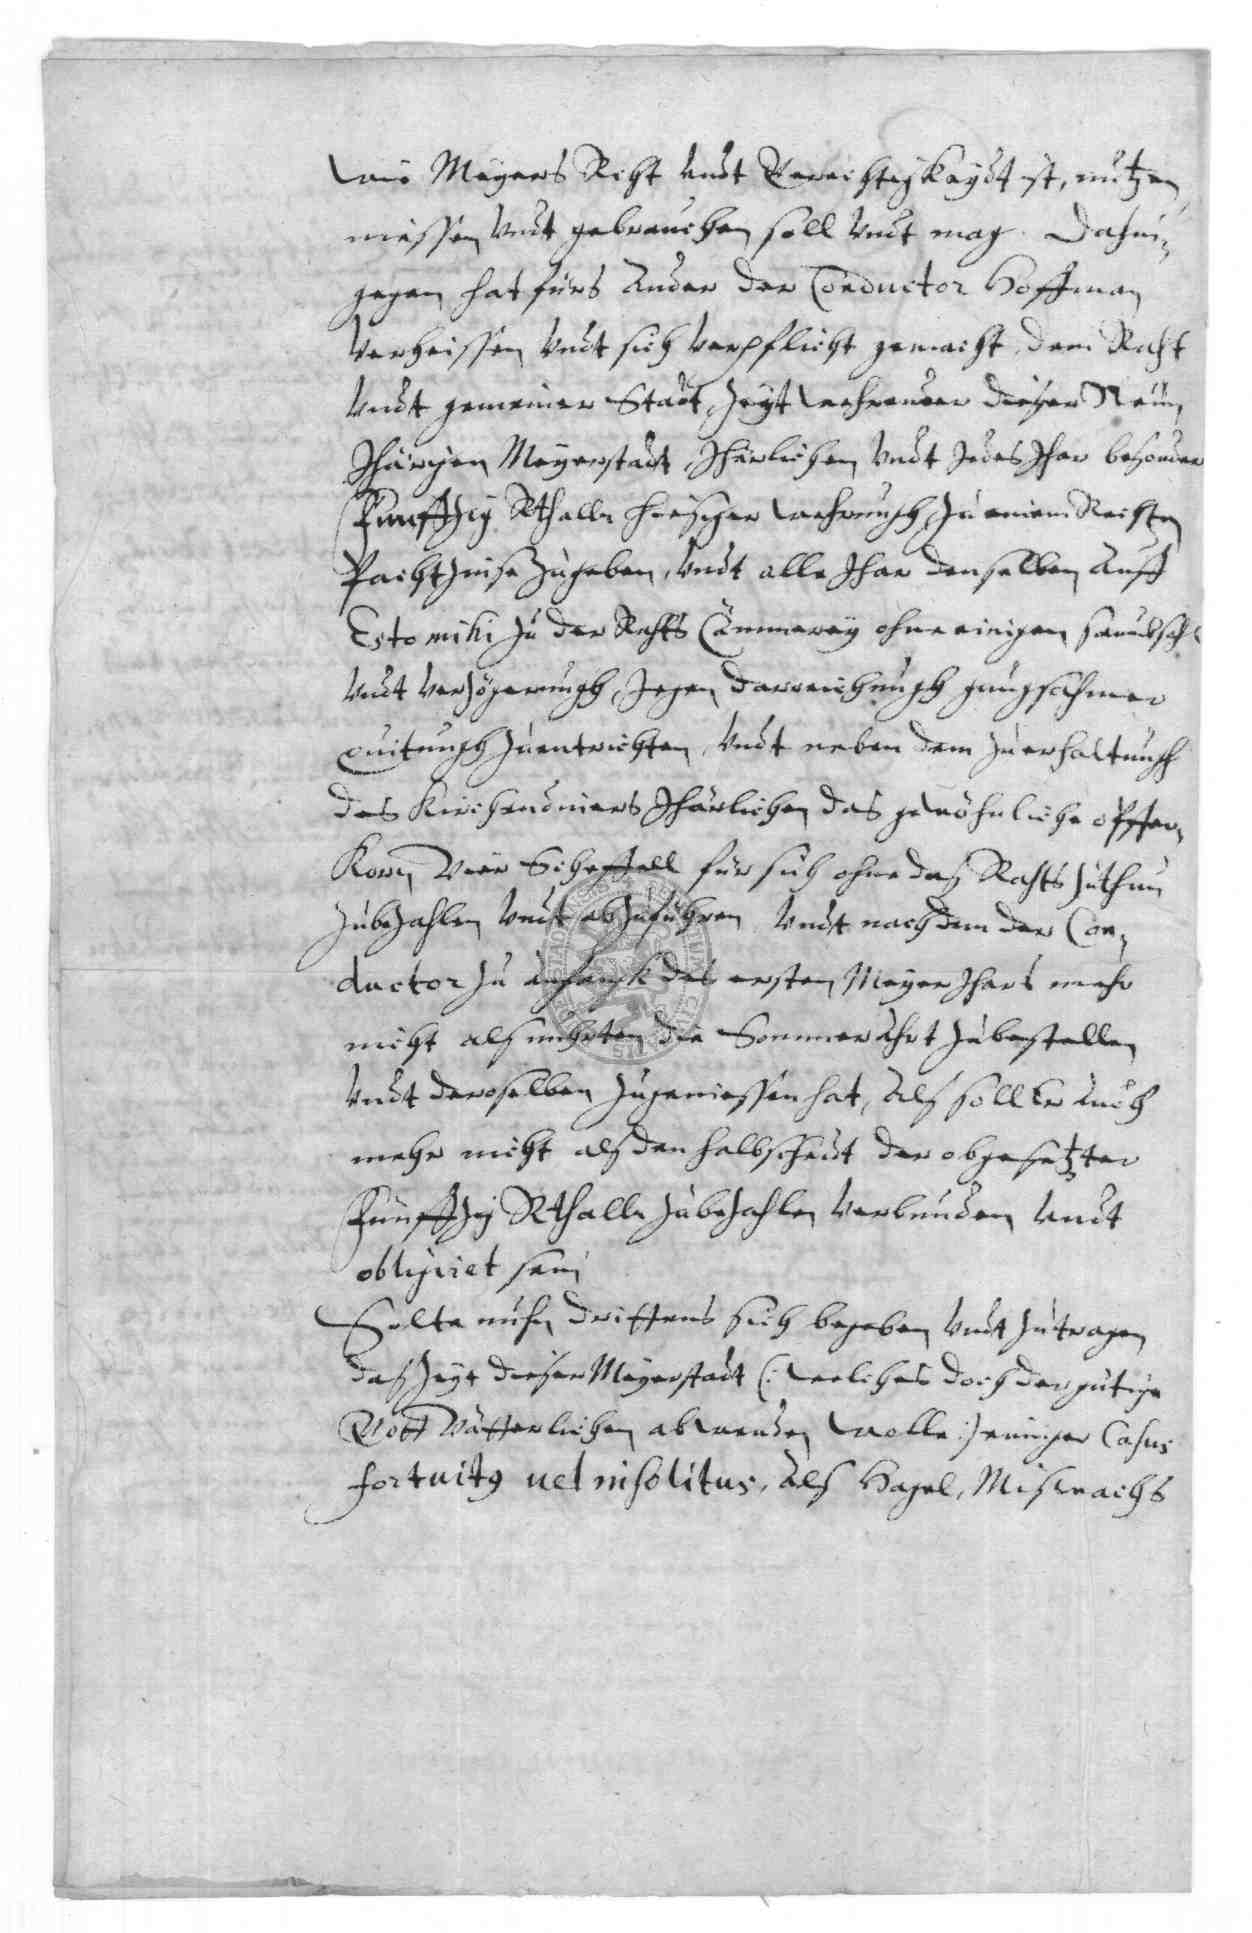 wie Meyers Recht undt Gerechtigkaydt ist, nützen
niessen undt gebrauchen soll undt mag. Dahin¬
gegen hat fürs Ander der Conductor Hoffman
verheissen undt sich verpflicht gemacht, dem Raht
undt gemeiner Stadt, Zeyt wehrender dieser Neün,
Jhärigen Meyerstadt Jhärlichen undt Jedes Jhar besonder
Fünffzig Rthaller hiesiger wehrungh, zu einem Rechten
Pachtzinse zugeben, undt alle Jhar denselben auff
Esto mihi zu der Rahts Cämmerey ohne einigen
undt verzögerungh, Jegen darreichungh gnugsahmer
quitungh zuentrichten, undt neben dem zu erhaltungh
des Kirchendiners Jhärlichen das gewöhnliche opffer¬
Korn, Vier Scheffell für sich ohne deß Rahts zuthun
zubezahlen undt abzuführen, undt nach dem der Con¬
ductor zu anfangk des ersten Meyer Jhars mehr
nicht alß die Sommer Ahrt zubestellen
undt deroselben zugeniessen hat, Alß soll Er auch
mehr nicht alß den halbscheidt der obgesetzter
Fünffzig Rthaller zubezahlen verbunden undt
obligiret sein
Solte nuhn drittens sich begeben undt zutragen
daß Zeyt dieser Meyerstadt (: welches doch der gütige
Gott Vätterlichen abwenden wolle :) einiger Casus
fortuitus vel insolitus, Alß Hagel, Miswachs